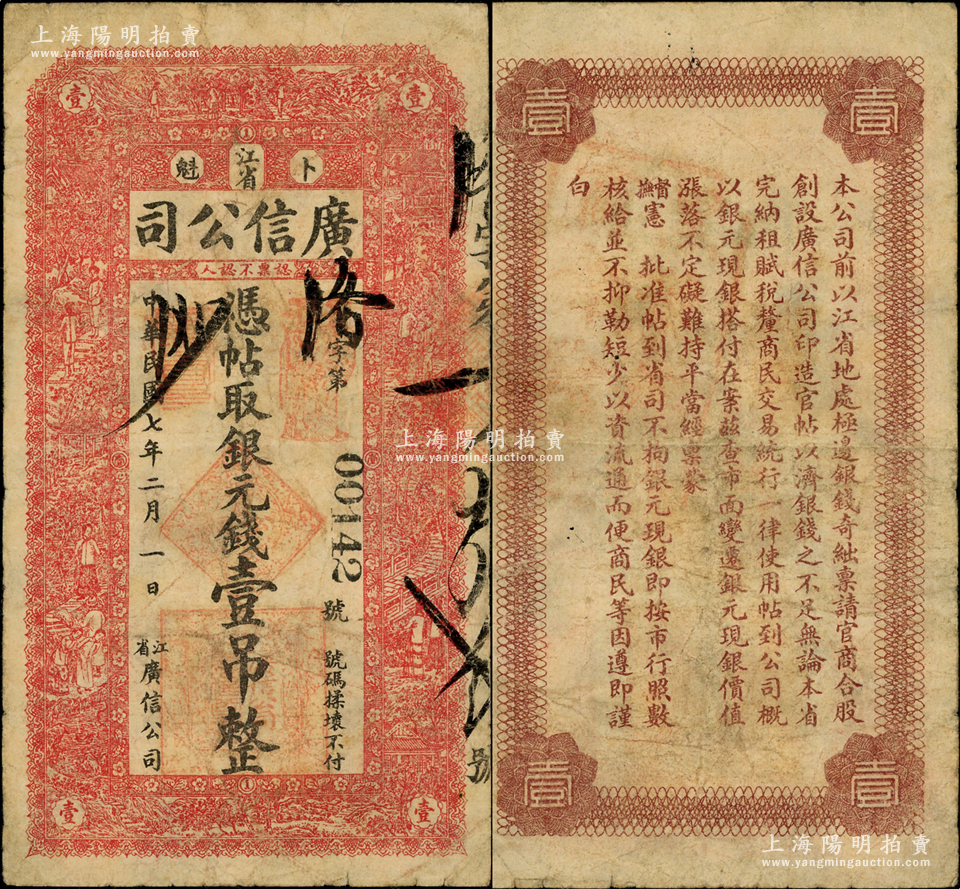 上海陽明拍賣
www.yangmingauction.com
壹
壹
卜
江省
魁
廣信公司
認票不認人
洛
字第
00142
號
號碼揉壞不付
憑帖取銀元錢壹吊整
中華民國七年二月一日
江省廣信公司
號
壹
壹
壹
壹
本公司前以江省地處極邊銀錢奇絀稟請官商合股
創設廣信公司印造官帖以濟銀錢之不足無論本省
完納租賦稅釐商民交易統行一律使用帖到公司概
以銀元現銀搭付在案茲查市面變遷銀元現銀價值
漲落不定礙難持平當經票蒙
督撫憲 批准帖到省司不拘銀元現銀即按市行照數
核給並不抑勒短少以資流通而便商民等因遵即謹
白
壹
壹
上海陽明拍賣
www.yangmingauction.com
上海陽明拍賣
www.yangmingauction.com